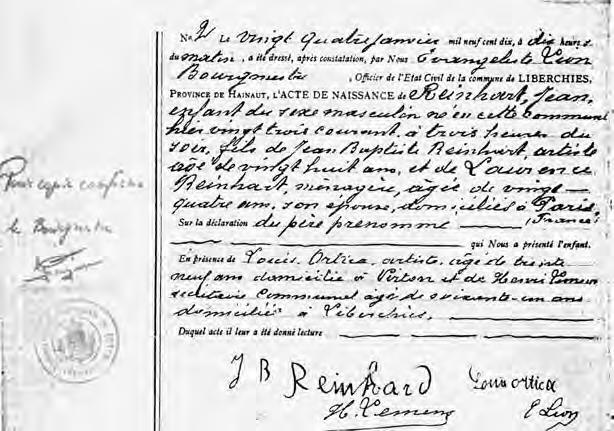 No 2 Le vingt quatre janvier mil neuf cent dix, à dix heures
du matin, a été dressé, après constatation, par Nous Évangéliste Leon
Bourgmestre, Officier de l'Etat Civil de la commune de LIBERCHIES,
PROVINCE DE HAINAUT, L'ACTE DE NAISSANCE DE Reinhart, Jean,
enfant du sexe masculin né en cette commune
hier vingt trois courant à trois heures du
soir, fils de Jean Baptiste Reinhart, artiste
âgé de vingt huit ans, et de Laurence
Reinhart, ménagère, âgée de vingt-
quatre ans, son épouse, domiciliés à Paris
Sur la déclaration du père prénommé (France)
qui Nous a présenté l'enfant.
En présence de Louis Ortica, artiste, âgé de trente
neuf ans domicilié à et de Henri
secrétaire communal âgé de soixante-un ans
domicilié à Liberchies.
Duquel acte il leur a été donné lecture
Pour copie conforme
le Bourgmestre
J B Reinhard Louis ortica
H. E Leon